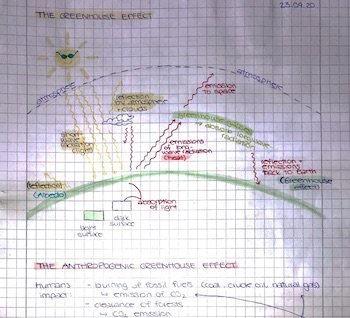 THE GREENHOUSE EFFECT
23.09.20
atmosphere
atmosphere
reflection
by atmosphere
+ clouds
emission
to space
greenhouse gases
→ absorb long wave
radiation
short
wave
radiation
(light)
emissions
of long
wave radiation
(heat)
reflection +
emissions
back to Earth
(Greenhouse
effect)
Reflection
(Albedo)
absorption
of light
light
surface
dark
surface
THE ANTHROPOGENIC GREENHOUSE EFFECT
Humans
impact:
- burning of fossil fuels (coal, crude oil, natural gas)
↳ emission of CO₂
- clearance of forests
↳ CO₂ emission